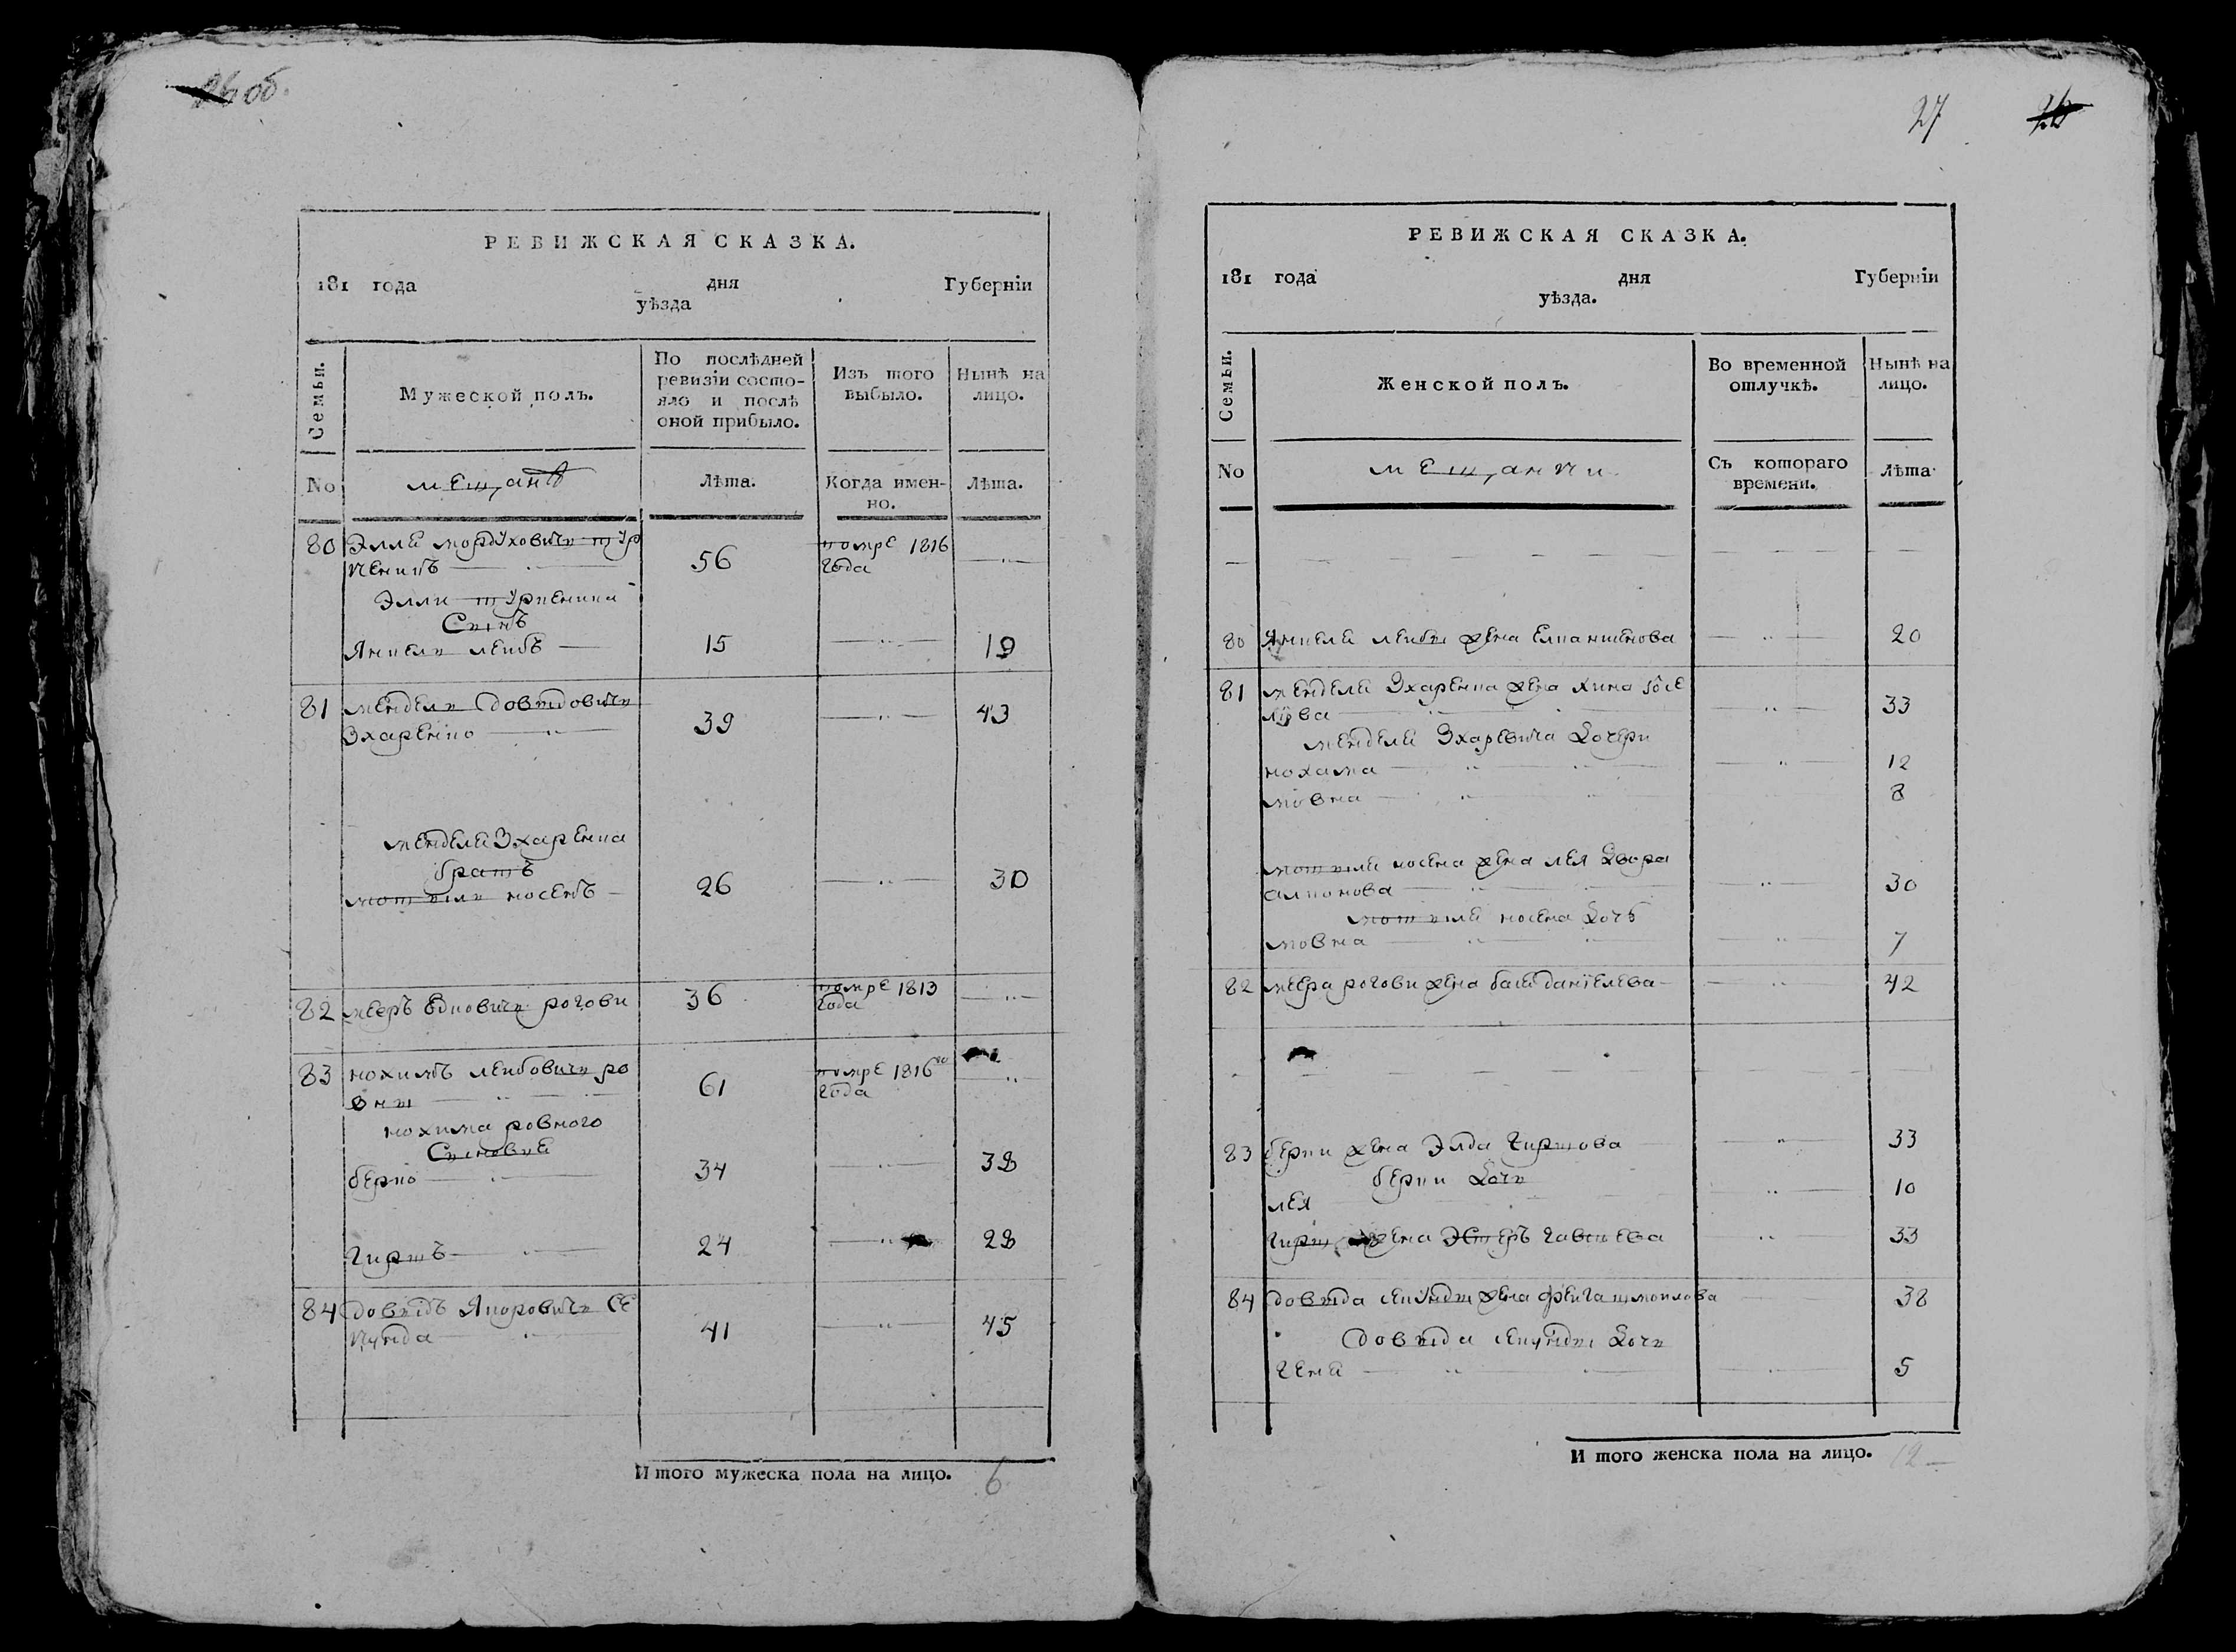 26 об.
РЕВИЖСКАЯ СКАЗКА.
181 года дня Губерніи
уѣзда
Семьи.
Мужеской полъ.
По послѣдней ревизіи состояло и послѣ оной прибыло.
Изъ того выбыло.
Нынѣ на лицо.
No
мещанъ
Лѣта.
Когда именно.
Лѣта.
80 Элли мордуховичь тур 56 помре 1816 года
Элли
Сынъ
Янкель леибъ 15 19
81 мендель Довыдовичь 39 43
Эхаренко
менделя Эхаренка
братъ
мотель носенъ 26 30
82 мееръ рогови 36 помре 1813 года
83 нохимъ леибовичь ро 61 помре 1816го года
вны
нохима ровного
Сыновья
берко 34 38
гиршъ 24 28
84 Довыдъ Якоровичь Се 41 45
кунда
И того мужеска пола на лицо. 6
27 26
РЕВИЖСКАЯ СКАЗКА.
181 года дня Губерніи
уѣзда.
Семьи.
Женской полъ.
Во временной отлучкѣ.
Нынѣ на лицо.
No
мещанки
Съ котораго времени.
Лѣта
80 Янкеля леибы жена 20
81 менделя Эхаренка жена хина 33
менделя Эхаревича Дочери
нохама 12
ховна 8
мотеля носена жена лея Двора 30
мотеля носена Дочь
ховна 7
82 меера рогови жена бася даніелева 42
83 берки жена Элда гиршова 33
берки Дочь
лея 10
гирша жена Эстеръ 33
84 довыда секунды жена феига шмоилова 38
Довыда секунды Дочь
геня 5
И того женска пола на лицо. 12